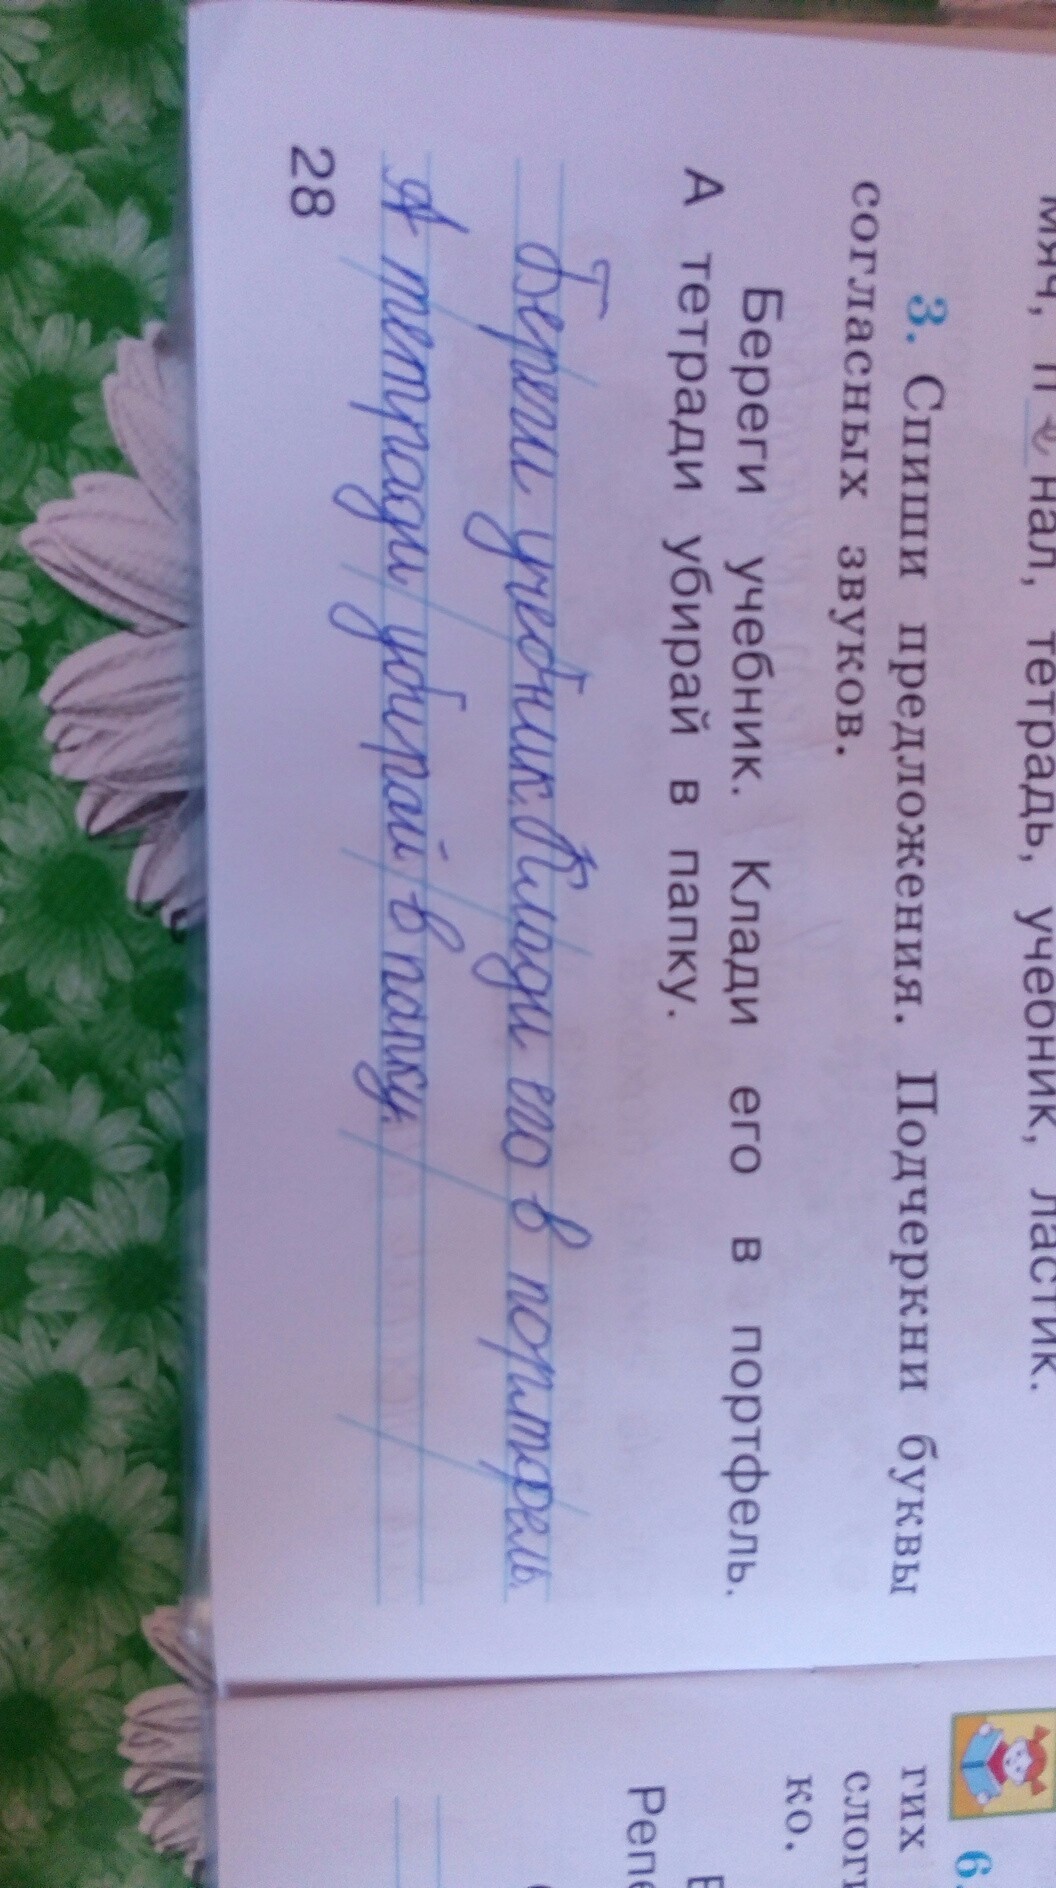 мяч, п е нал, тетрадь, учебник, ластик.
3. Спиши предложения. Подчеркни буквы
согласных звуков.
Береги учебник. Клади его в портфель.
А тетради убирай в папку.
Береги учебник. Клади его в портфель.
А тетради убирай в папку.
28
6.
гих
ко.
Репе